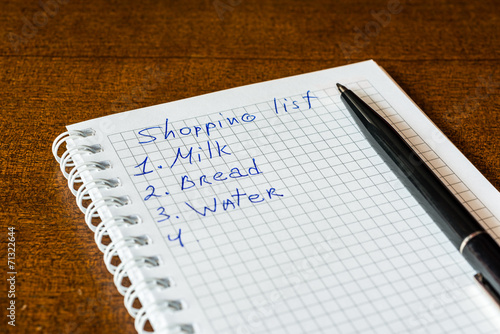 Shopping list
1. Milk
2. Bread
3. Water
4
Adobe Stock | #71322644